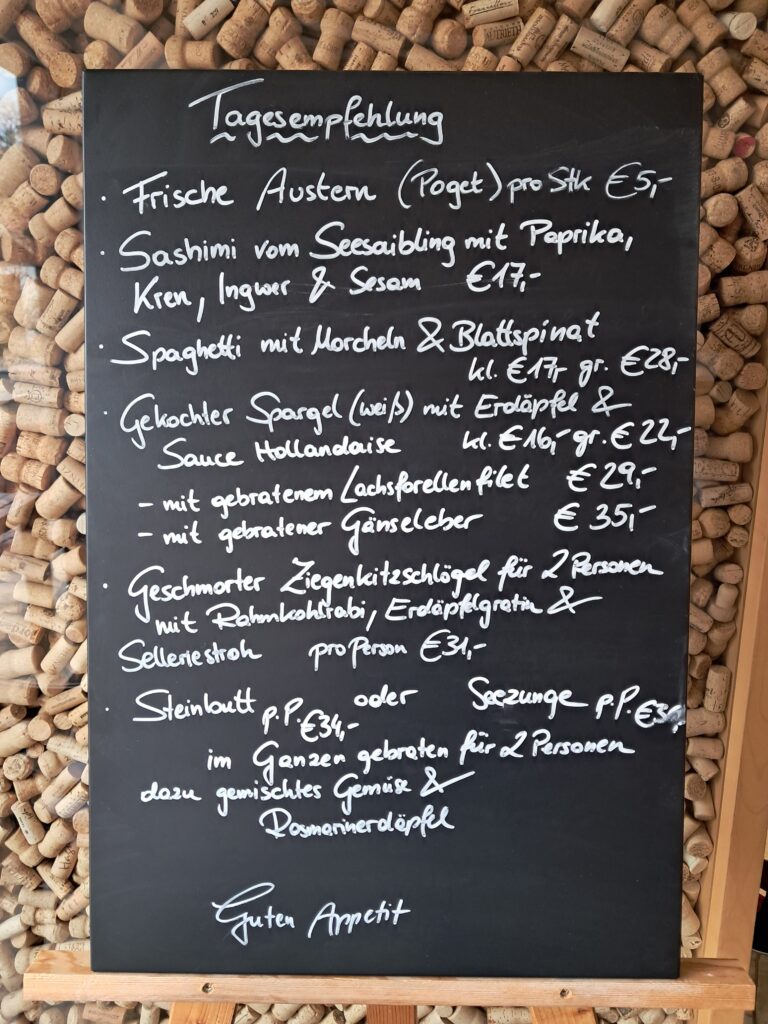 Tagesempfehlung
· Frische Austern (Poget) pro Stk €5,-
· Sashimi vom Seesaibling mit Paprika,
Kren, Ingwer & Sesam €17,-
· Spaghetti mit Morcheln & Blattspinat
kl. €17,- gr. €28,-
· Gekochter Spargel (weiß) mit Erdäpfel &
Sauce Hollandaise kl. €16,- gr. €22,-
- mit gebratenem Lachsforellenfilet €29,-
- mit gebratener Gänseleber €35,-
· Geschmorter Ziegenkitzschlögel für 2 Personen
mit Rahmkohlrabi, Erdäpfelgratin &
Selleriestroh pro Person €31,-
· Steinbutt p.P. €34,- oder Seezunge p.P.
im Ganzen gebraten für 2 Personen
dazu gemischtes Gemüse &
Rosmarinerdäpfel
Guten Appetit